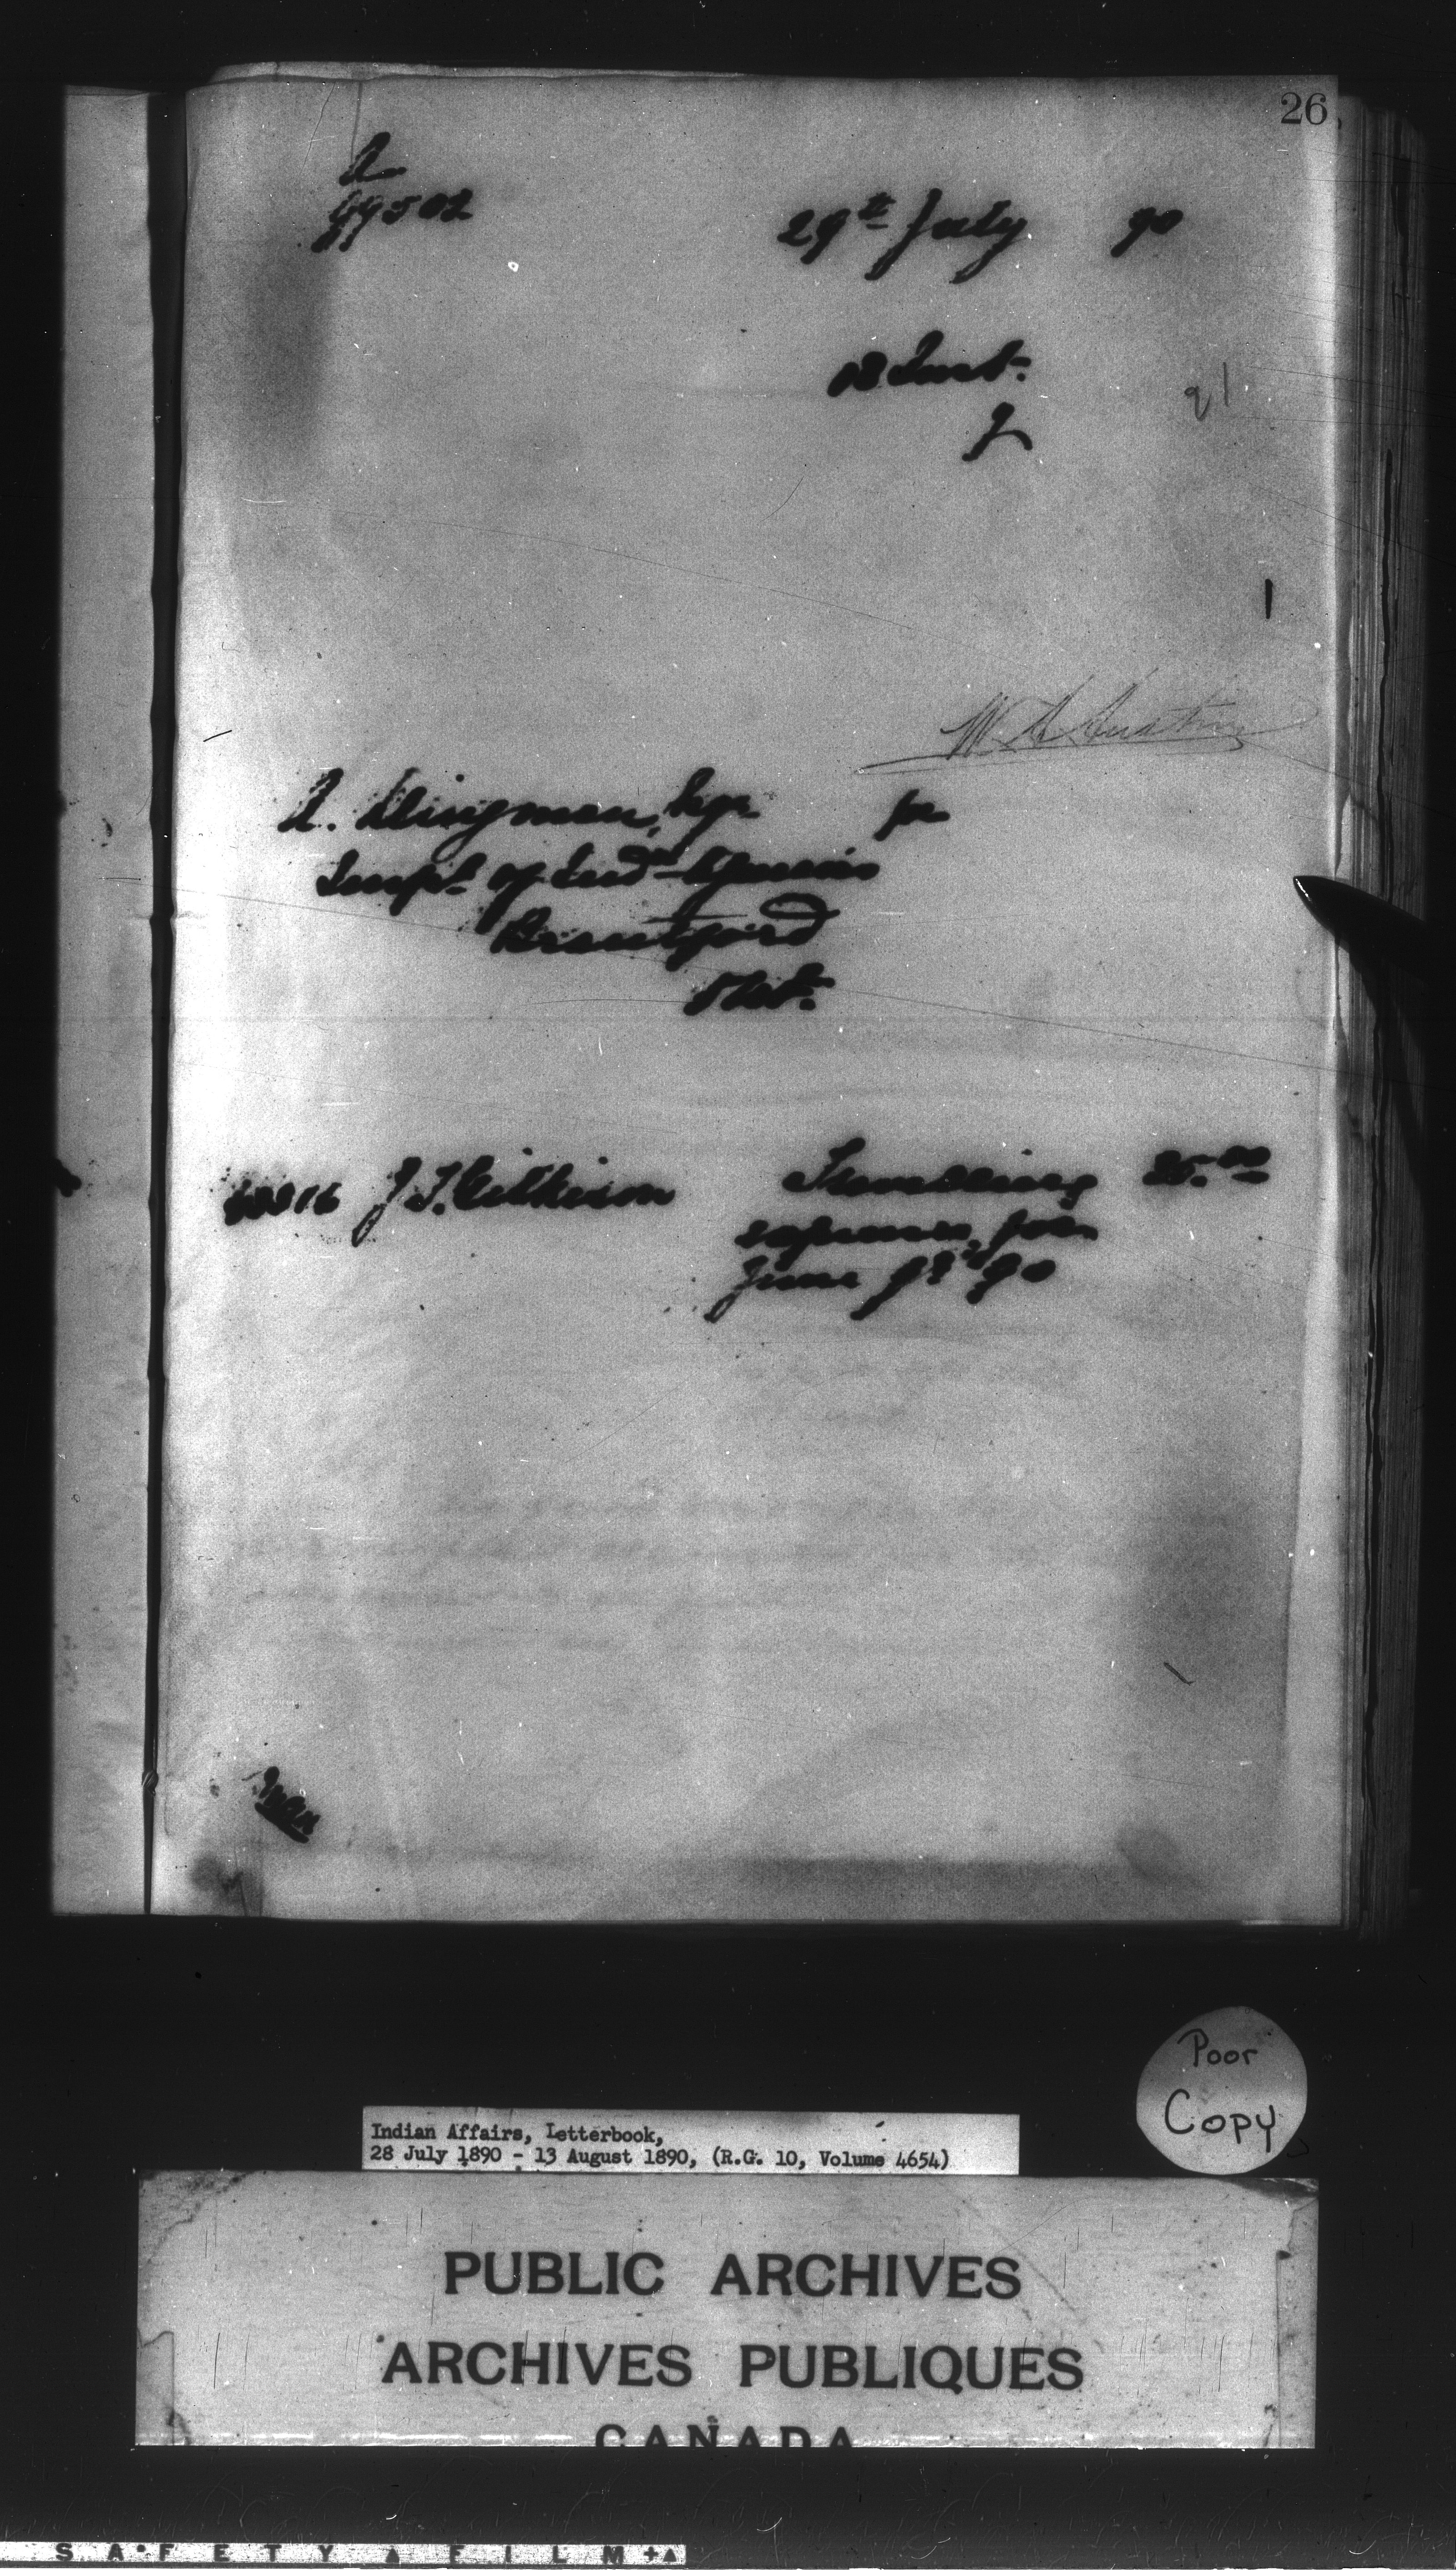 26
A
99502
29th July 90
18 Inst.
W A Austin
A. Dingman, Esqr
for
Inspr of Indn Agencies
Brantford
Ont.
J. T. Gilkison Travelling 25.00
expenses for
June 90
Poor
Copy
Indian Affairs, Letterbook,
28 July 1890 - 13 August 1890, (R.G. 10, Volume 4654)
PUBLIC ARCHIVES
ARCHIVES PUBLIQUES
CANADA
SAFETY FILM